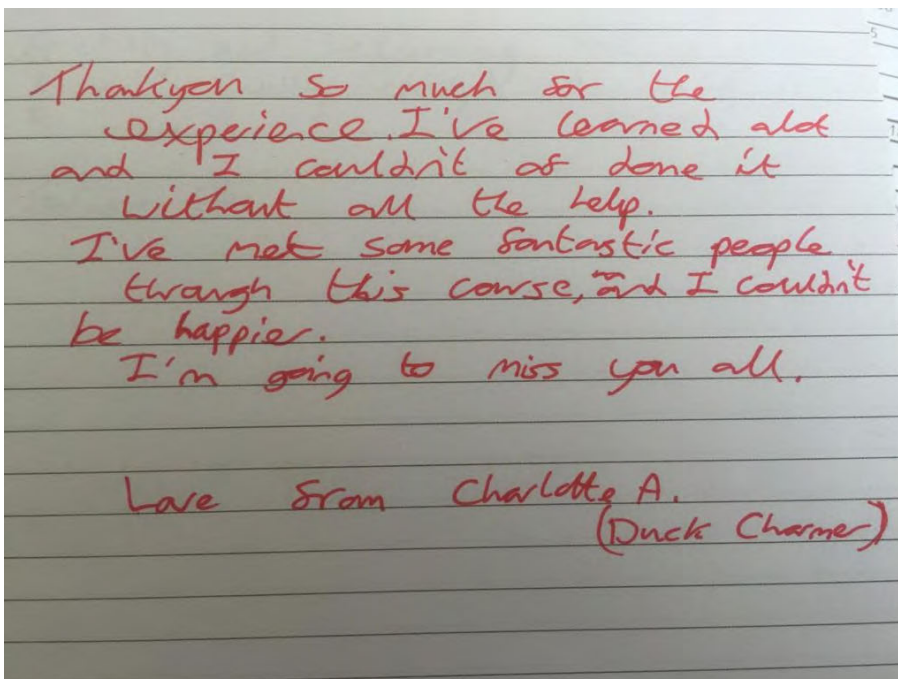 Thankyou so much for the
experience. I've learned alot
and I couldn't of done it
without all the help.
I've met some fantastic people
through this course, and I couldn't
be happier.
I'm going to miss you all.
Love from Charlotte A.
(Duck Charmer)